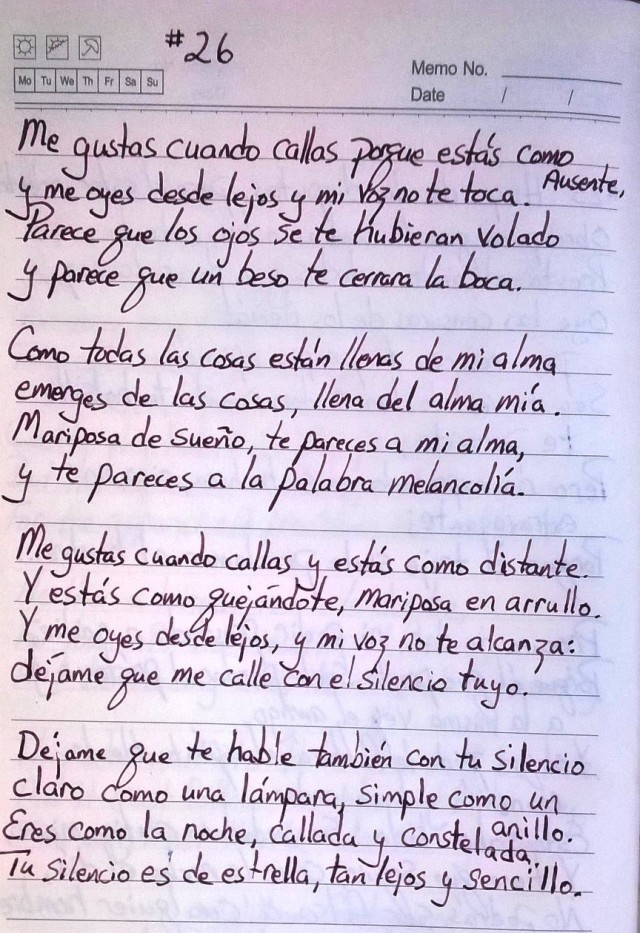 #26
Memo No.
Mo Tu We Th Fr Sa Su
Date / /
Me gustas cuando callas porque estás como
Ausente,
y me oyes desde lejos y mi voz no te toca.
Parece que los ojos se te hubieran volado
y parece que un beso te cerrara la boca.
Como todas las cosas están llenas de mi alma
emerges de las cosas, llena del alma mía.
Mariposa de sueño, te pareces a mi alma,
y te pareces a la palabra melancoliá.
Me gustas cuando callas y estás como distante.
Y estás como quejándote, mariposa en arrullo.
Y me oyes desde lejos, y mi voz no te alcanza:
déjame que me calle con el silencio tuyo.
Déjame que te hable también con tu silencio
claro como una lámpara, simple como un
anillo.
Eres como la noche, callada y constelada.
Tu silencio es de estrella, tan lejos y sencillo.